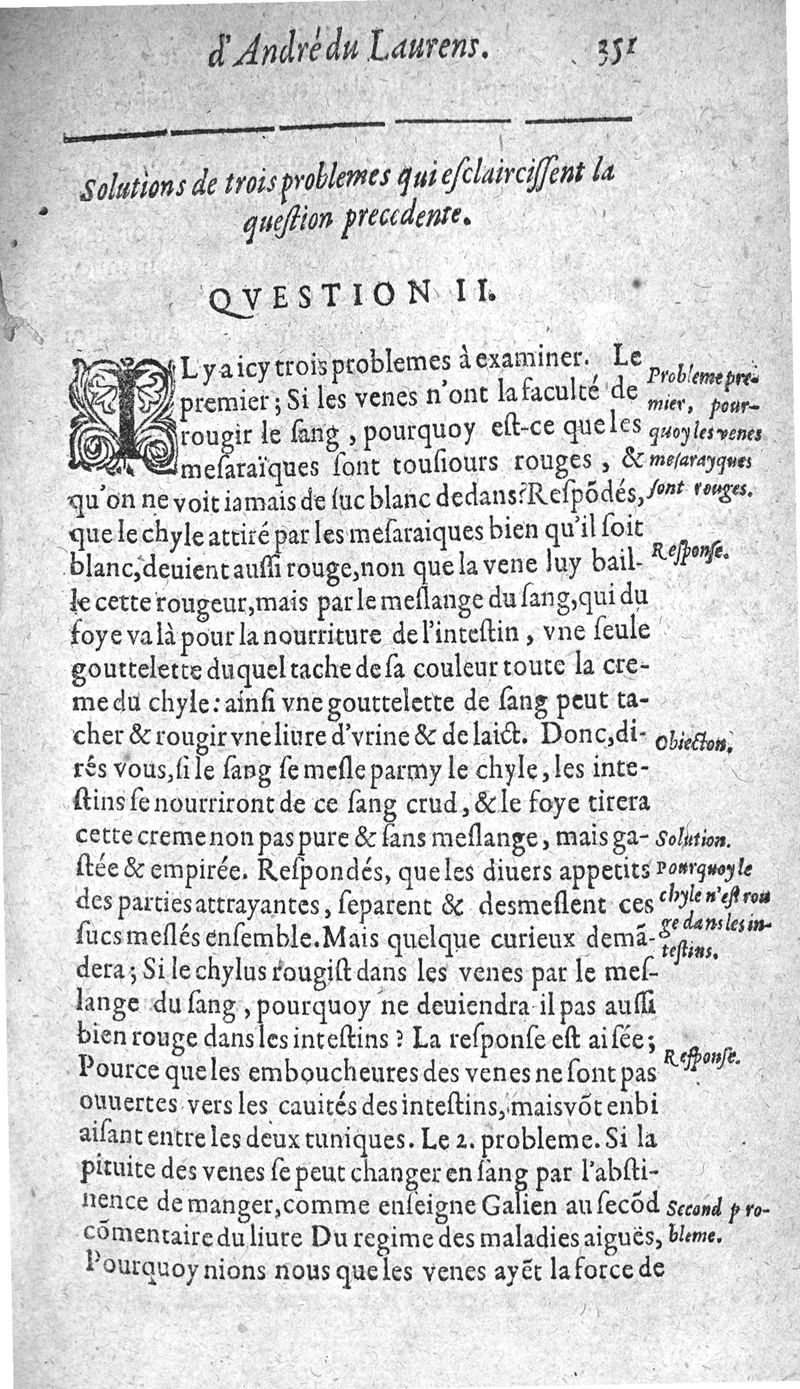 d'André du Laurens. 351
Solutions de trois problemes qui eſclairciſſent la
queſtion precedente.
QVESTION II.
IL y a icy trois problemes à examiner. Le
premier; Si les venes n'ont la faculté de
rougir le ſang, pourquoy eſt-ce que les
meſaraïques ſont touſiours rouges, &
qu'on ne voit iamais de ſuc blanc dedans? Reſpõdés,
que le chyle attiré par les meſaraiques bien qu'il ſoit
blanc, deuient auſſi rouge, non que la vene luy bail-
le cette rougeur, mais par le meſlange du ſang, qui du
foye va là pour la nourriture de l'inteſtin, vne ſeule
gouttelette duquel tache de ſa couleur toute la cre-
me du chyle: ainſi vne gouttelette de ſang peut ta-
cher & rougir vne liure d'vrine & de laict. Donc, di-
rés vous, ſi le ſang ſe meſle parmy le chyle, les inte-
ſtins ſe nourriront de ce ſang crud, & le foye tirera
cette creme non pas pure & ſans meſlange, mais ga-
ſtée & empirée. Reſpondés, que les diuers appetits
des parties attrayantes, ſeparent & desmeſlent ces
ſucs meſlés enſemble. Mais quelque curieux demã-
dera; Si le chylus rougiſt dans les venes par le meſ-
lange du ſang, pourquoy ne deuiendra il pas auſſi
bien rouge dans les inteſtins? La reſponſe eſt aiſée;
Pource que les emboucheures des venes ne ſont pas
ouuertes vers les cauités des inteſtins, mais võt en bi
aiſant entre les deux tuniques. Le 2. probleme. Si la
pituite des venes ſe peut changer en ſang par l'abſti-
nence de manger, comme enſeigne Galien au ſecõd
cõmentaire du liure Du regime des maladies aiguës,
Pourquoy nions nous que les venes ayẽt la force de
Probleme pre-
mier, pour-
quoy les venes
meſarayques
ſont rouges.
Reſponſe.
Obiection.
Solution.
Pourquoy le
chyle n'eſt rou
ge dans les in-
teſtins.
Reſponſe.
Second pro-
bleme.